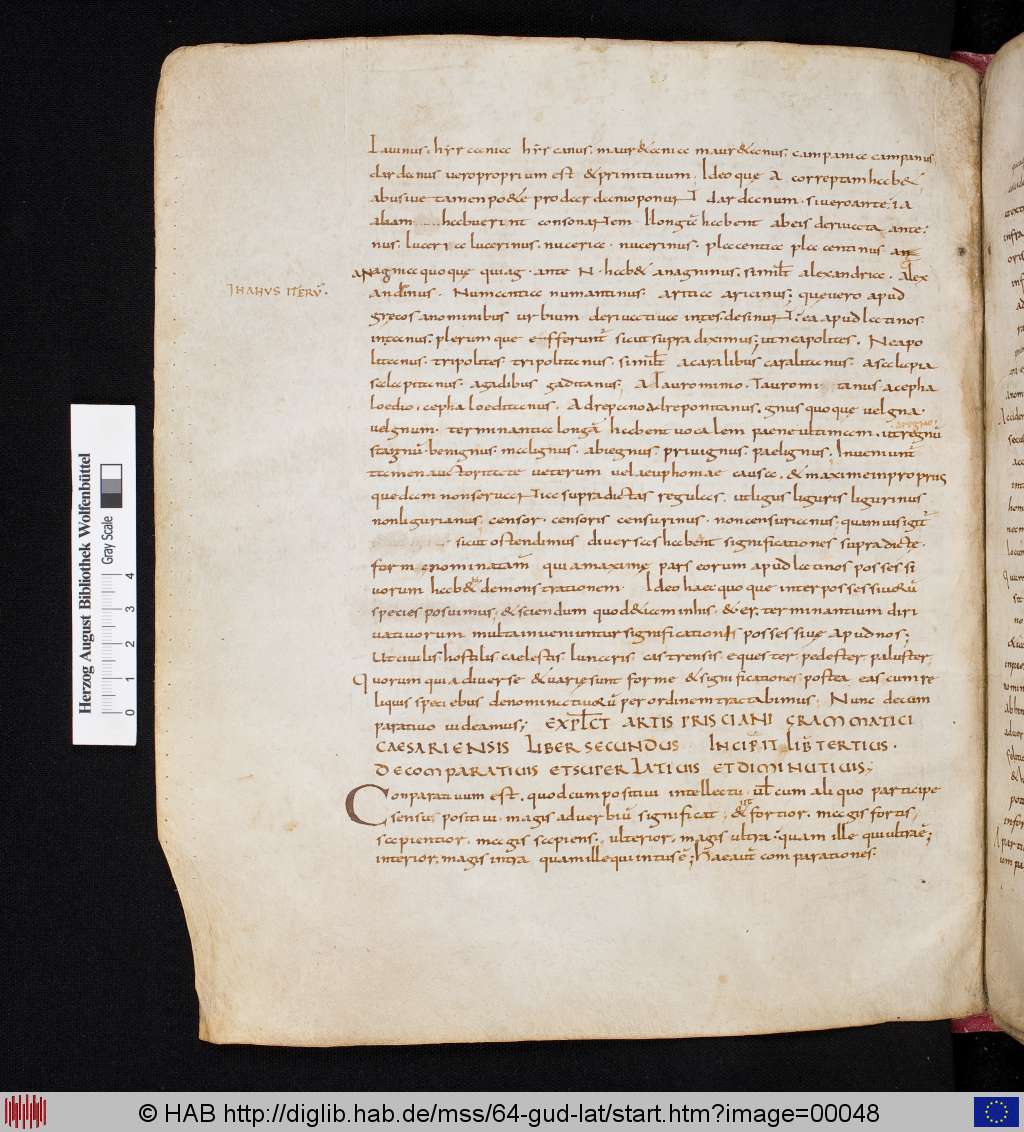 Lauinus. hyrcania hyrcanus. mauretania mauretanus. campania campanus
dardanus uero proprium est & primitiuum. Ideoque A correptam hab&
abusiue tamen pro dardanio ponunt dardanum. si uero ante ia
aliam habuerint consonantem N longam habent a beis deriuata ante
nus. luceria lucerinus. nuceria. nucerinus. placentia placentinus an
anagnia quoque quia g. ante N. hab& anagninus. simił alexandria. alex
IHAHUS ITERŪ.
andrinus. Numantia numantinus. aritia aricinus; que uero apud
grecos a nominibus urbium deriuatiua in tes. desinunt; ea apud latinos
in tanus. plerumque efferunt̄ sicut supra diximus; ut neapolites. Neapo
litanus. tripolites. tripolitanus. simił a caralibus caralitanus. Asclepia
asclepitanus. a gadibus gaditanus; A Taurominio. Tauromitanus a cepha
loedio. cephaloeditanus. A drepano drepanitanus. gnus quoque uel gna.
uel gnum. terminantia longā habent uocalem paene ultimam. ut regnū
stagnū. benignus. malignus. abiegnus. priuignus. paelignus. Inueniunt̄
tamen auctoritate ueterum uel aeuphoniae causa. & maxime in propriis
quedam non seruantia supradictas regulas. ut ligus liguris ligurinus
non ligurianus. censor. censoris censurinus. non censurianus; quamuis igit̄
sicut ostendimus diuersas habent significationes supradicte
forme nominatam quia maxime pars eorum apud latinos possessi
uorum hab& demonstrationem. Ideo haec quoque inter possessiuorū
species posuimus; & sciendum quod &iam in lus. & er. terminantium diri
uatiuorum multa inueniuntur significationis possessiue apud nos;
Ut ciuilis hostilis. caelestis. lunaris. castrensis. equester. pedester paluster.
Quorum quia diuerse & uariae sunt forme & significationes. postea eas cum re
liquis speciebus denominatiuorū per ordinem tractabimus; Nunc de com
paratiuo uideamus; EXPLCT ARTIS PRISCIANI GRAMMATICI
CAESARIENSIS LIBER SECUNDUS. INCIPIT LIB TERTIUS.
DE COMPARATIUIS ET SUPERLATIUIS ET DIMINUTIUIS;
Conparatiuum est. quod cum positiui intellectu. uł cum aliquo participe
sensui positiui. magis aduerbiū significat; ut & fortior. magis fortis,
sapientior. magis sapiens; ulterior. magis ultra; quam ille qui ultra ē;
interior. magis intra quam ille qui intus ē; Haec aut̄ comparationes.
Herzog August Bibliothek Wolfenbüttel
Gray Scale
0 1 2 3 4
© HAB http://diglib.hab.de/mss/64-gud-lat/start.htm?image=00048